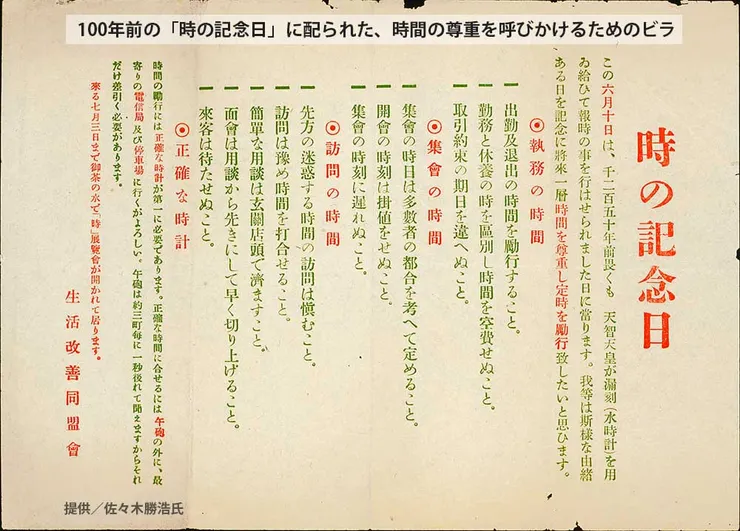 100年前の「時の記念日」に配られた、時間の尊重を呼びかけるためのビラ
時の記念日
この六月十日は、千二百五十年前畏くも　天智天皇が漏刻(水時計)を用
ゐ給ひて報時の事を行はせられました日に當ります。我等は斯様な由緒
ある日を記念に將來一層時間を尊重し定時を勵行致したいと思ひます。
◉執務の時間
一 出勤及退出の時間を勵行すること。
一 勤務と休養の時を區別し時間を空費せぬこと。
一 取引約束の期日を違へぬこと。
◉集會の時間
一 集會の時日は多數者の都合を考へて定めること。
一 開會の時刻は掛値をせぬこと。
一 集會の時刻に遅れぬこと。
◉訪問の時間
一 先方の迷惑する時間の訪問は愼むこと。
一 訪問は豫め時間を打合せること。
一 簡單な用談は玄關店頭で濟ますこと。
一 面會は用談から先きにして早く切り上げること。
一 來客は待たせぬこと。
◉正確な時計
時間の勵行には正確な時計が第一に必要であります。正確な時間に合せるには午砲の外に、最
寄りの電信局及び停車場に行くがよろしい。午砲は約三町毎に一秒後れて聞えますからそれ
だけ差引く必要があります。
來る七月三日まで御茶の水で「時」展覽會が開かれて居ります。
生活改善同盟會
提供／佐々木勝浩氏